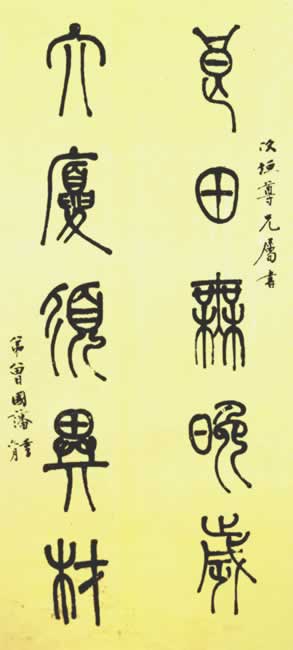 次垣尊兄屬書
良田無晚歲
大廈須異材
弟曾國藩